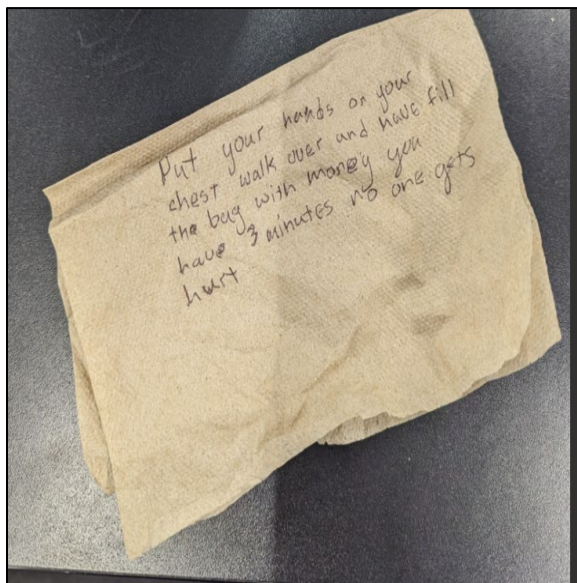 Put your hands on your
chest walk over and have fill
the bag with money you
have 3 minutes no one gets
hurt